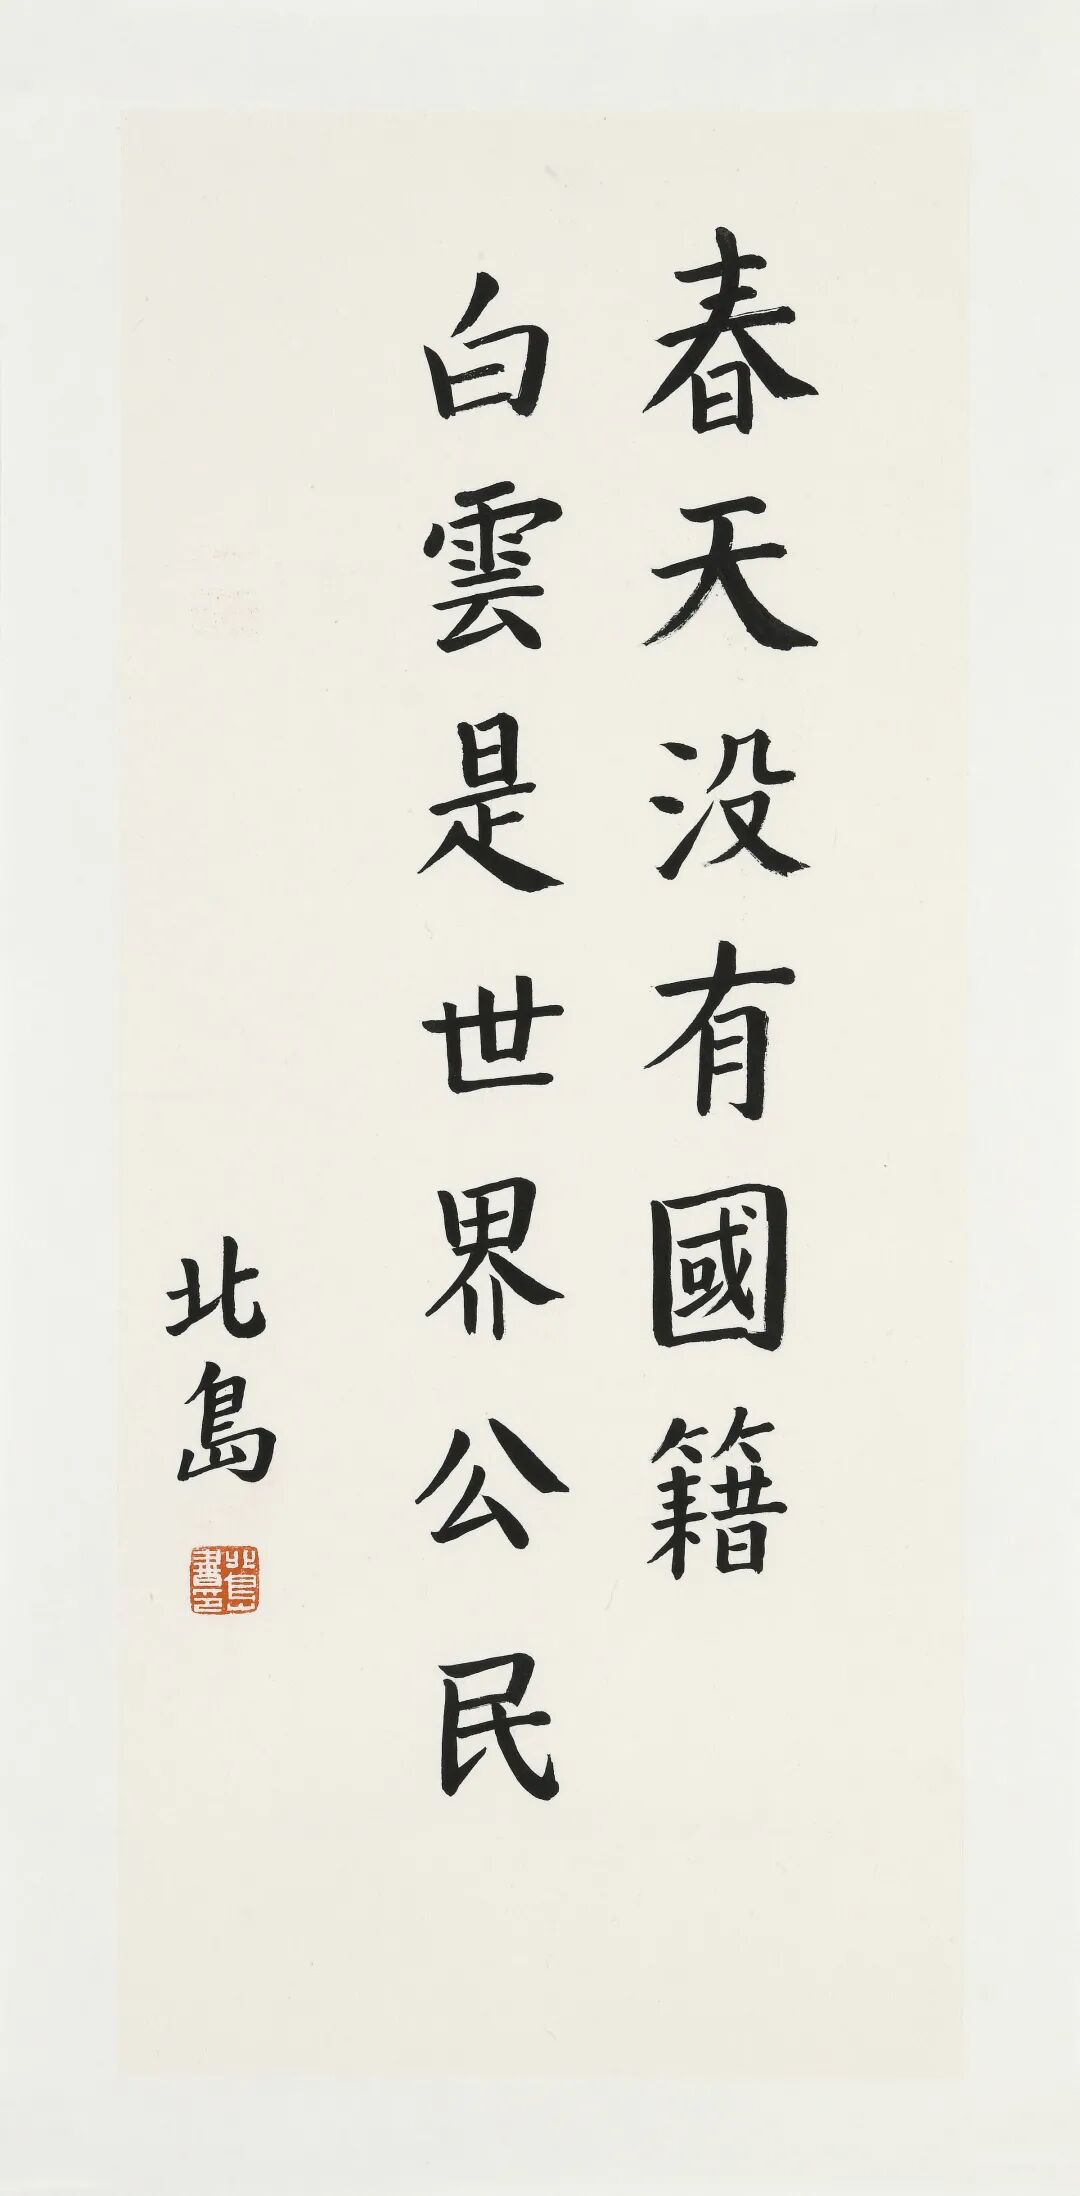 春天没有國籍
白雲是世界公民
北島
北島書印